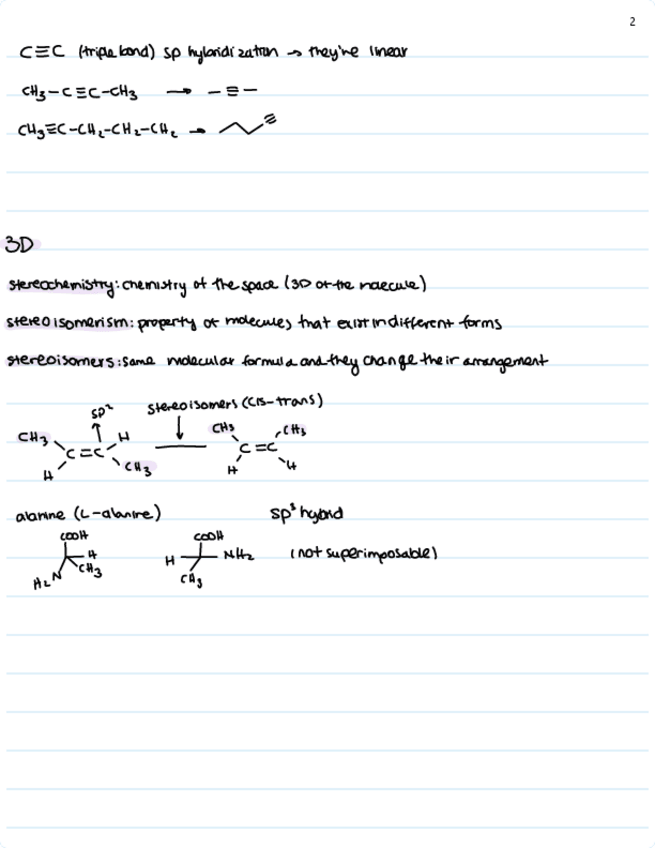 2
C≡C (triple bond) sp hybridization → they're linear
CH3-C≡C-CH3 → -≡-
CH3≡C-CH2-CH2-CH2 →
3D
stereochemistry: chemistry of the space (3D of the molecule)
stereoisomerism: property of molecules that exist in different forms
stereoisomers: same molecular formula and they change their arrangement
sp² stereoisomers (cis-trans)
CH3 H CH3 CH3
C=C C=C
H CH3 H H
alanine (L-alanine) sp³ hybrid
COOH COOH
H H NH2 (not superimposable)
H2N CH3 CH3